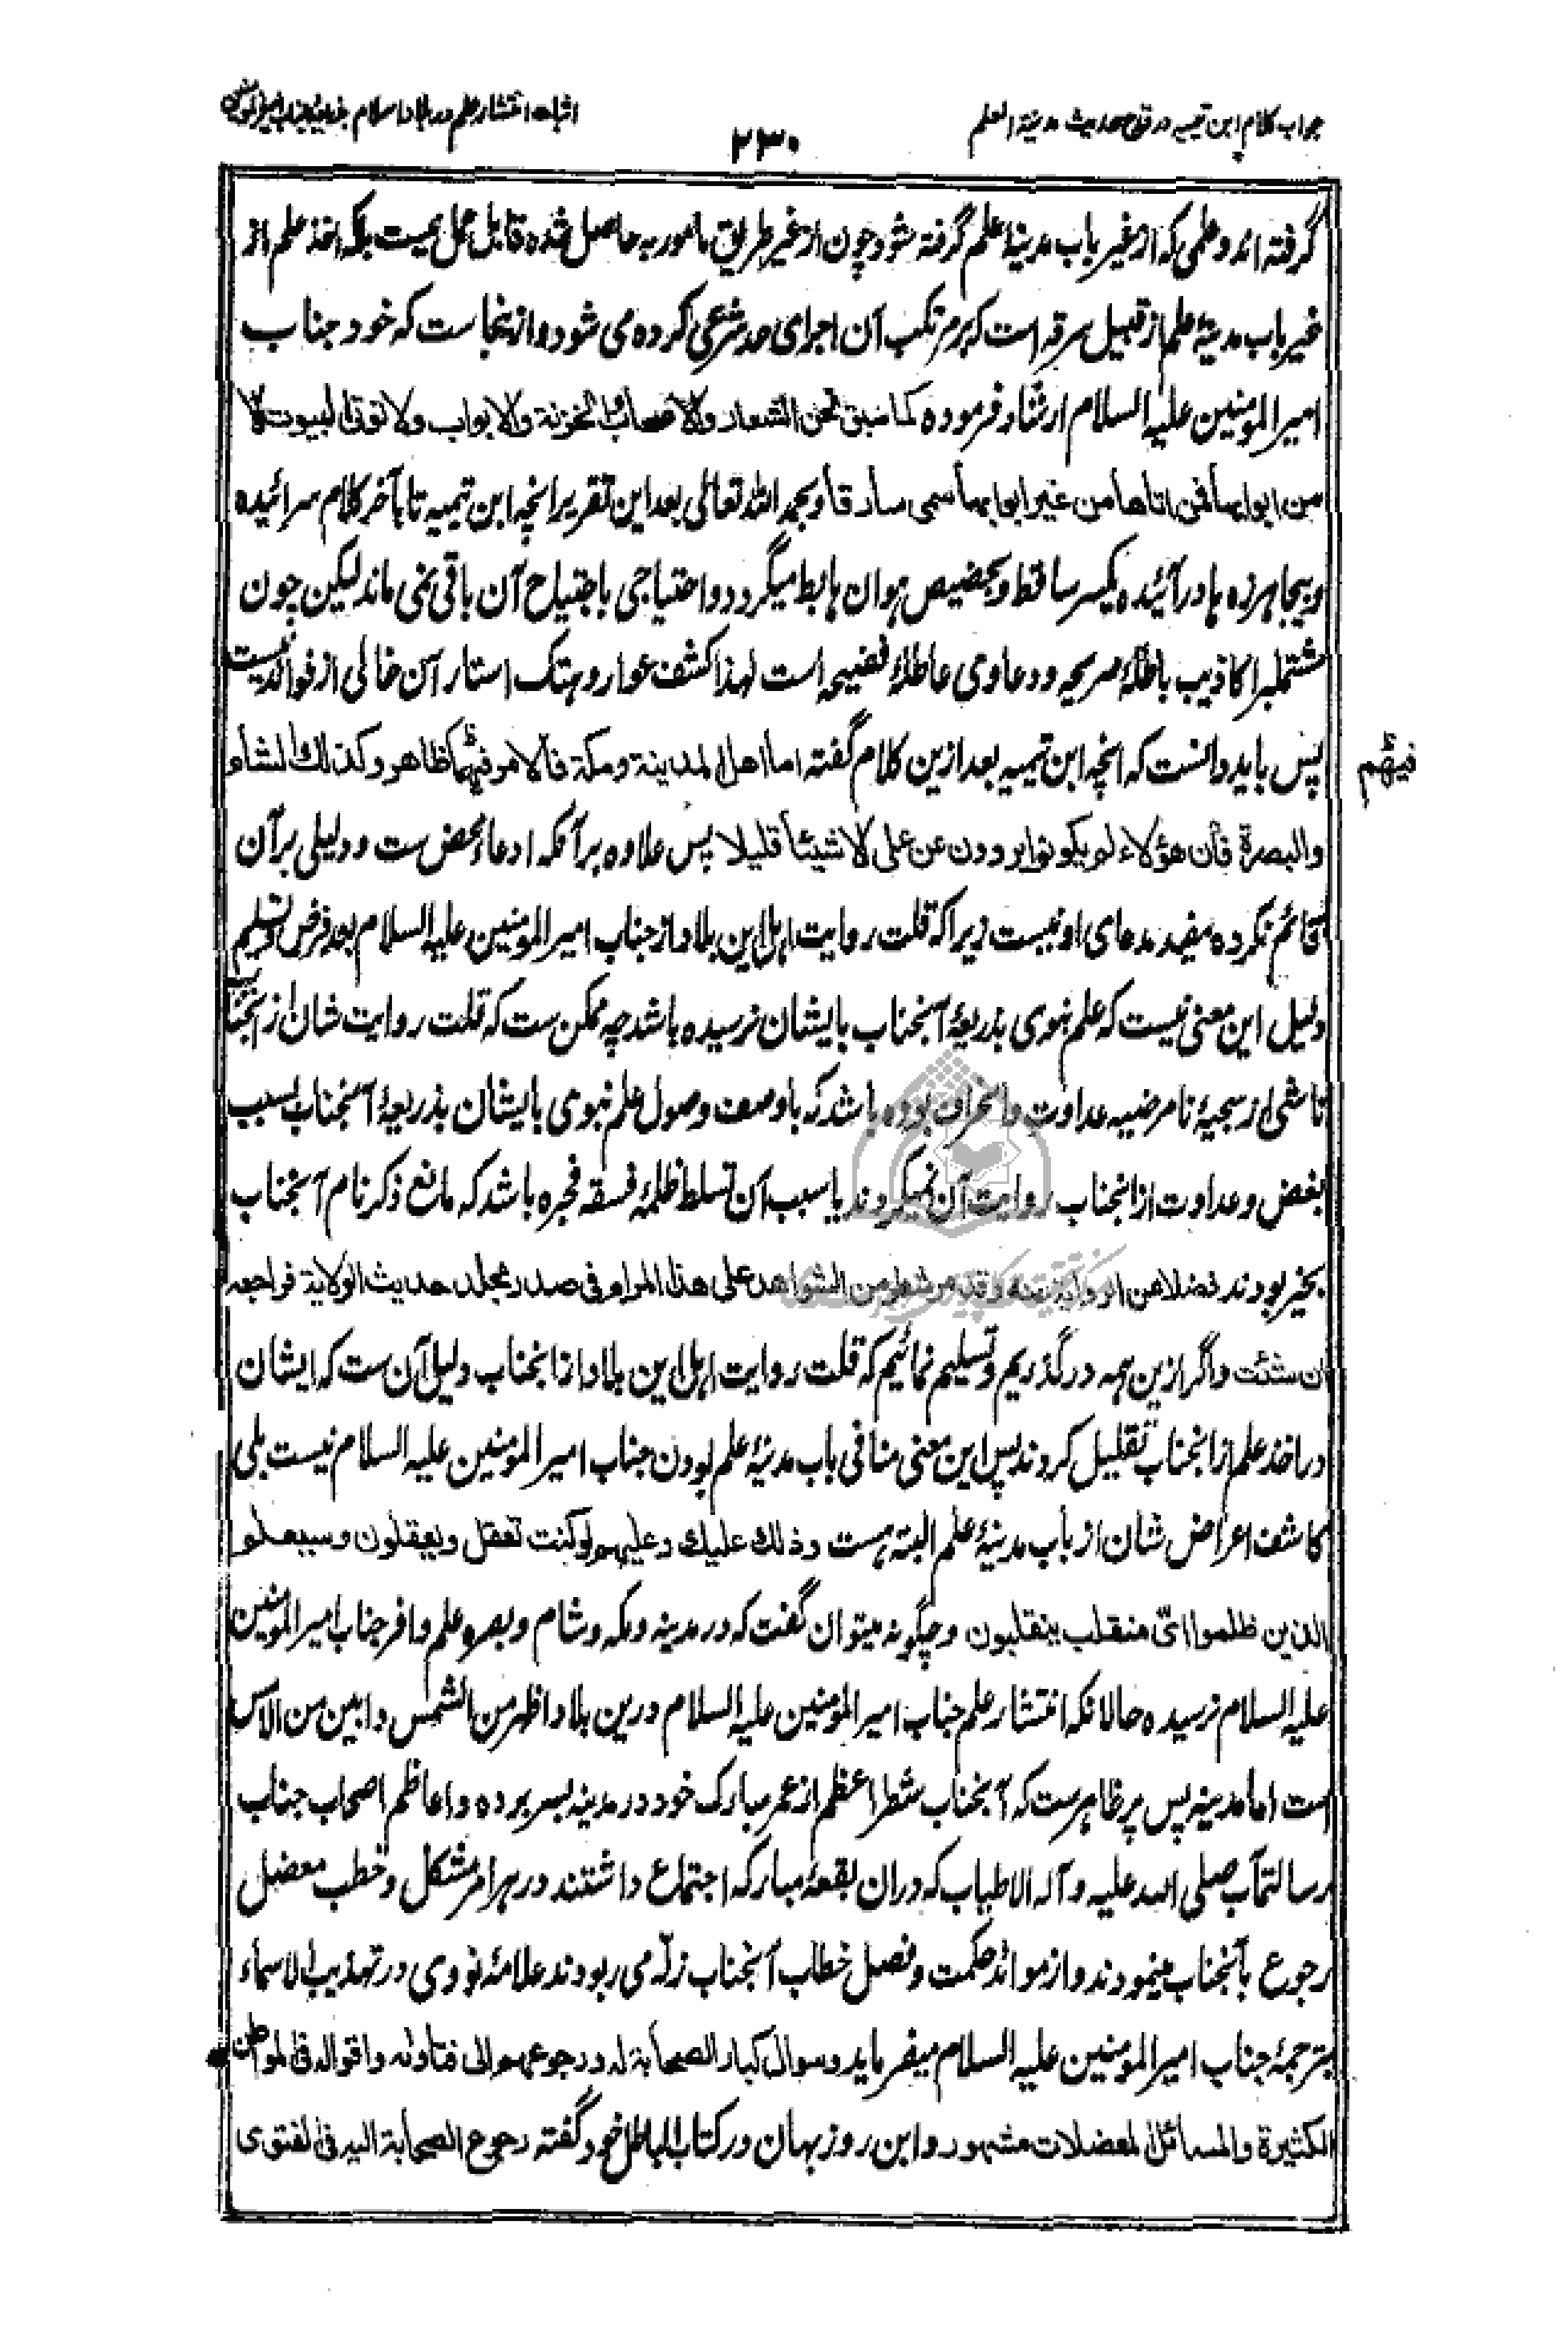 جواب کلام ابن تیمیه در قدح حدیث مدینة العلم
۲۳۰
اثبات انتشار علم در بلاد اسلام بذریعهٔ جناب امیرالمومنین
گرفته اند و علمی که از غیر باب مدینهٔ علم گرفته شود چون از غیر طریق مامور به حاصل شده قابل عمل نیست بلکه اخذ علم از
غیر باب مدینهٔ علم از قبیل سرقه است که بر مرتکب آن اجرای حد شرعی کرده می شود و ازینجاست که خود جناب
امیر المومنین علیه السلام ارشاد فرموده کما سبق نحن الشعار والاصحاب والخزنة والابواب ولا تؤتی البیوت الا
من ابوابها فمن اتاها من غیر ابوابها سمی سارقا و بحمد الله تعالی بعد این تقریر انچه ابن تیمیه تا بآخر کلام سرائیده
و بیجا هرزه با درآئیده یکسر ساقط و بحضیض هوان هابط میگردد و احتیاجی باجتیاح آن باقی نمی ماند لیکن چون
مشتملبر اکاذیب باطلهٔ صریحه و دعاوی عاطلهٔ فضیحه است لهذا کشف عوار و هتک استار آن خالی از فوائد نیست
پس باید دانست که انچه ابن تیمیه بعد ازین کلام گفته اما اهل المدینة ومکة فالامر فیهما ظاهر وکذلک الشام
فیهم
والبصرة فان هؤلاء لم یکونوا یروون عن علی الا شیئا قلیلا پس علاوه بر آنکه ادعاء محض ست و دلیلی بر آن
قائم نکرده مفید مدعای او نیست زیرا که قلت روایت اهل این بلاد از جناب امیر المومنین علیه السلام بعد فرض و تسلیم
دلیل این معنی نیست که علم نبوی بذریعهٔ آنجناب بایشان نرسیده باشد چه ممکن ست که قلت روایت شان از آنجناب
ناشی از سجیهٔ نامرضیه عداوت و انحراف بوده باشد که باوصف وصول علم نبوی بایشان بذریعهٔ آنجناب بسبب
بغض و عداوت از آنجناب روایت آن نمیکردند یا سبب آن تسلط ظلمهٔ فسقه فجره باشد که مانع ذکر نام آنجناب
بخیر بودند فضلا عن الروایة عنه وقد مر شطر من الشواهد علی هذا المرام فی صدر مجلد حدیث الولایة فراجعه
ان شئت و اگر ازین همه درگذریم و تسلیم نمائیم که قلت روایت اهل این بلاد از آنجناب دلیل آن ست که ایشان
در اخذ علم از آنجناب تقلیل کردند پس این معنی منافی باب مدینهٔ علم بودن جناب امیر المومنین علیه السلام نیست بلی
کاشف اعراض شان از باب مدینهٔ علم البته هست وذلک علیک وعلیهم لو کنت تعقل ویعقلون وسیعلم
الذین ظلموا ای منقلب ینقلبون و چگونه میتوان گفت که در مدینه و مکه و شام و بصره علم وافر جناب امیر المومنین
علیه السلام نرسیده حالانکه انتشار علم جناب امیر المومنین علیه السلام درین بلاد اظهر من الشمس و ابین من الامس
است اما مدینه پس پر ظاهرست که آنجناب شطر اعظم از عمر مبارک خود در مدینه بسر برده و اعاظم اصحاب جناب
رسالتمآب صلی الله علیه و آله الاطیاب که دران بقعهٔ مبارکه اجتماع داشتند در هر امر مشکل و خطب معضل
رجوع بآنجناب مینمودند و از موائد حکمت و فصل خطاب آنجناب زلّه می ربودند علامهٔ نووی در تهذیب الاسماء
بترجمهٔ جناب امیر المومنین علیه السلام میفرماید وسوال کبار الصحابة له ورجوعهم الی فتاواه واقواله فی المواطن
الکثیرة والمسائل المعضلات مشهور و ابن روزبهان در کتاب الباطل خود گفته رجوع الصحابة الیه فی الفتوی